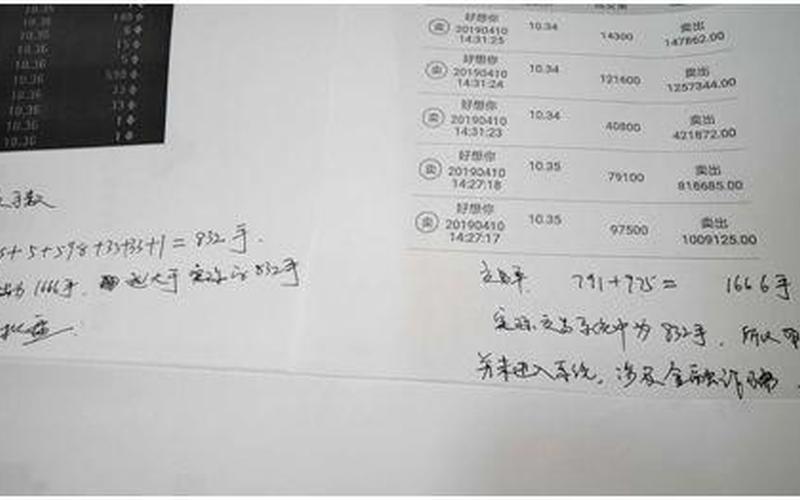 10.36
10.36 140
10.36 6
10.36 15
10.36 5
10.36 598
10.36 33
10.36 33
10.36 1
10.36 1
手数
5+5+598+33+33+1=832手.
1666手. 远大于实际的832手
卖 好想你 20190410 14:31:25 10.34 14300 卖出 147862.00
卖 好想你 20190410 14:31:24 10.34 121600 卖出 1257344.00
卖 好想你 20190410 14:31:23 10.34 40800 卖出 421872.00
卖 好想你 20190410 14:27:18 10.35 79100 卖出 818685.00
卖 好想你 20190410 14:27:17 10.35 97500 卖出 1009125.00
交易单 791+975= 1666手
实际交易系统中为832手. 所以
并未进入系统, 涉及金融诈骗